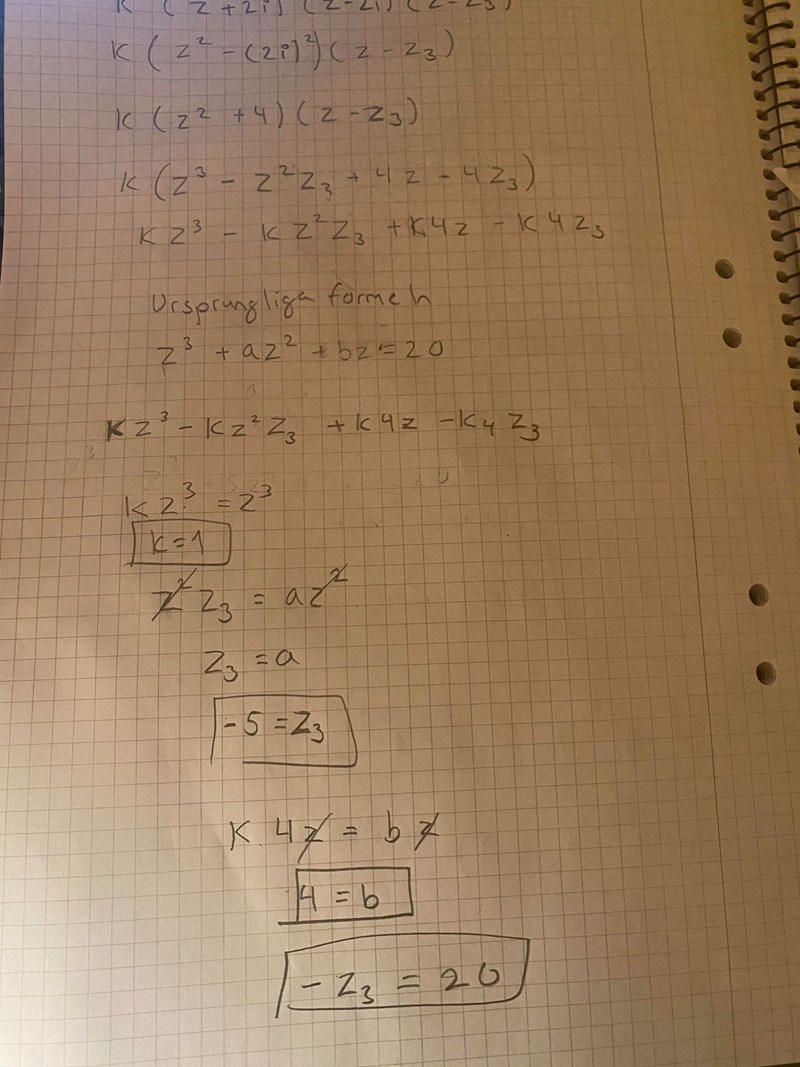 K (z+2i) (z-2i) (z-z₃)
K (z² - (2i)²) (z - z₃)
K (z² +4) (z - z₃)
K (z³ - z²z₃ + 4z - 4z₃)
Kz³ - Kz²z₃ + K4z - K4z₃
Ursprungliga formeln
z³ + az² + bz = 20
Kz³ - Kz²z₃ + K4z - K4z₃
Kz³ = z³
K=1
z²z₃ = az²
z₃ = a
-5 = z₃
K.4z = bz
4 = b
-z₃ = 20